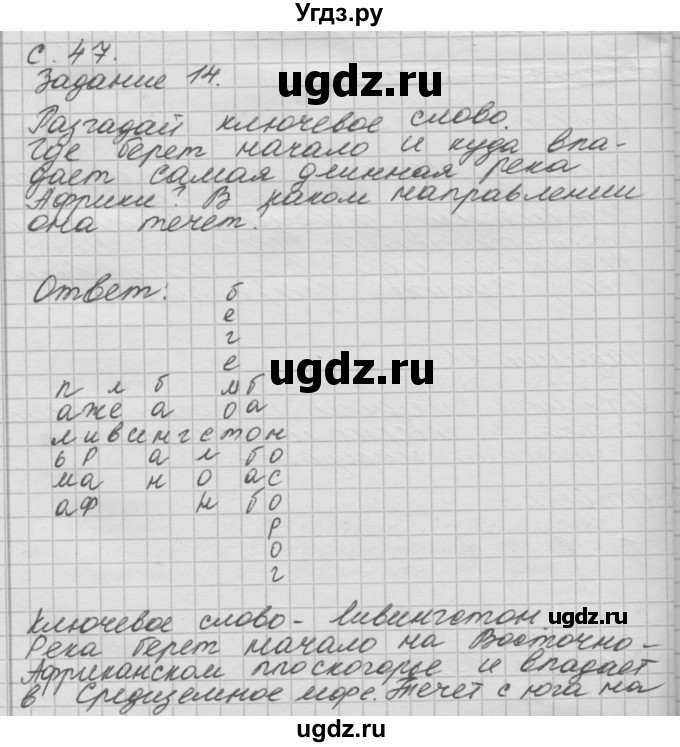 Угдз.ру
с. 47.
Задание 14.
Разгадай ключевое слово.
Где берет начало и куда впа-
дает самая длинная река
Африки? В каком направлении
она течет.
Ответ: б
е
г
е
п л б м б
а ж е а о а
л и в и н г с т о н
ь р а л б о
м а н о а с
а ф н б о
р
о
г
Ключевое слово - Ливингстон
Река берет начало на Восточно-
Африканском плоскогорье и впадает
в Средиземное море. Течет с юга на
ugdz.ru
ugdz.ru
ugdz.ru
ugdz.ru
ugdz.ru
ugdz.ru